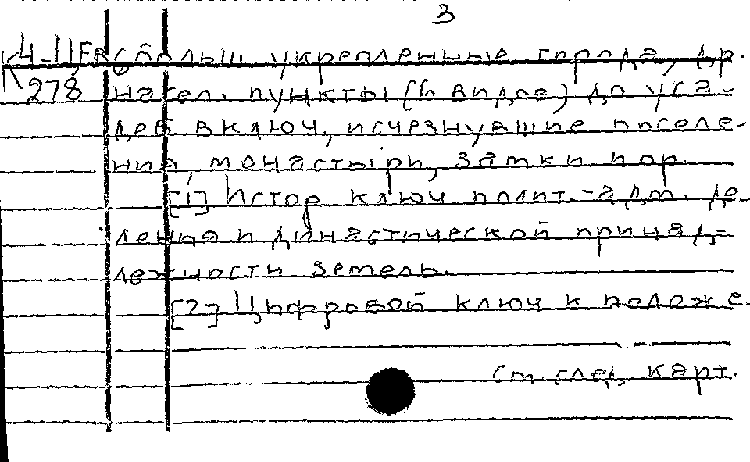 3
К 4-11/Га (больш. укрепленные города, др.
278 насел. пункты (в виде) до уса-
деб включ., исчезнувшие поселе-
ния, монастыри, замки и др.
[1] Истор ключ полит.-адм. де-
ления и династической принад-
лежности земель.
[2] Цифровой ключ к положе-
см. след. карт.